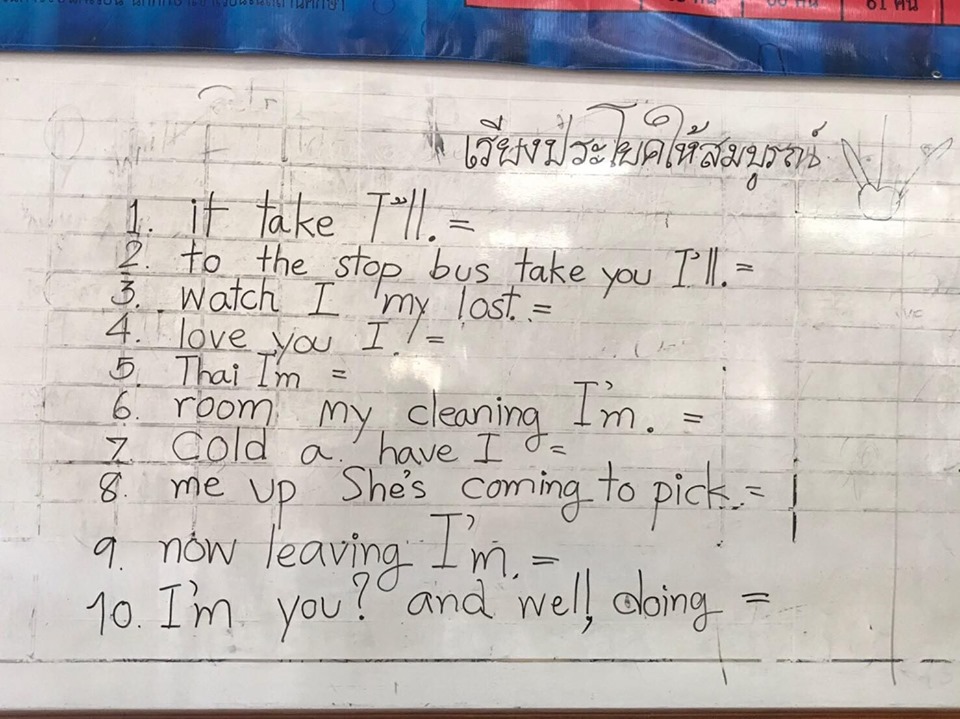 61 คน
เรียงประโยคให้สมบูรณ์
1. it take I'll. =
2. to the stop bus take you I'll. =
3. watch I my lost. =
4. love you I. =
5. Thai I'm =
6. room my cleaning I'm. =
7. Cold a have I =
8. me up She's coming to pick. =
9. now leaving I'm. =
10. I'm you? and well, doing =